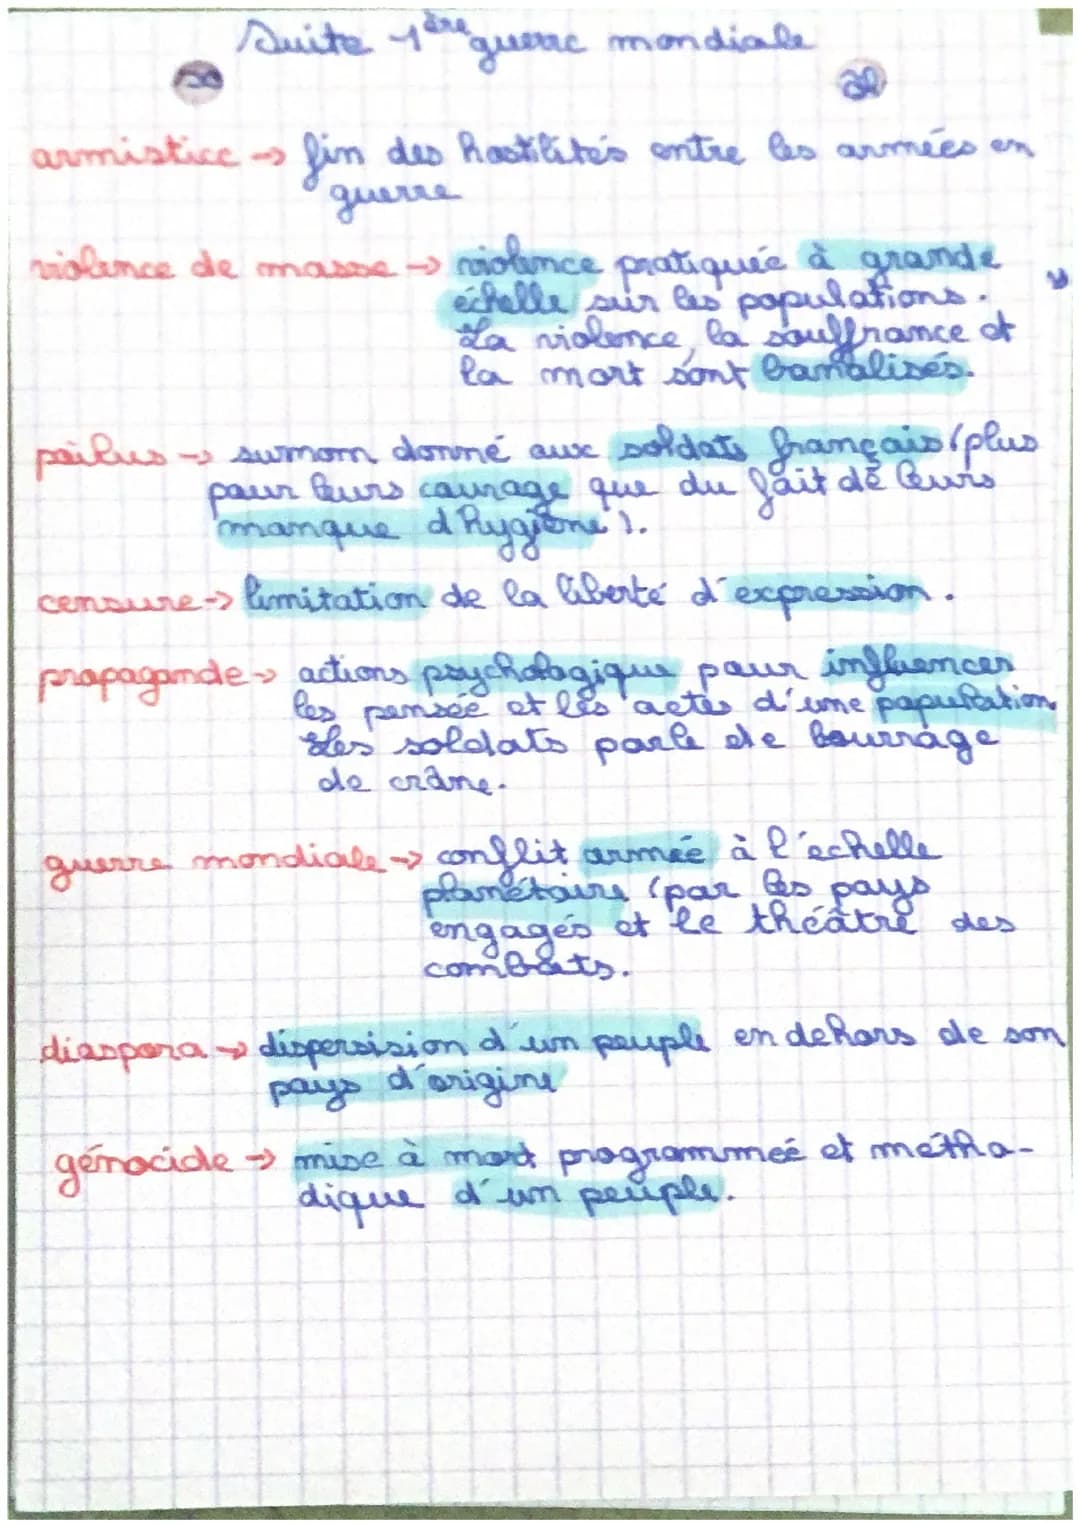 Suite 1ère guerre mondiale
armistice → fin des hostilités entre les armées en
guerre
violence de masse → violence pratiquée à grande
échelle sur les populations.
La violence, la souffrance et
la mort sont banalisés.
poilus → surnom donné aux soldats français (plus
pour leurs courage que du fait de leurs
manque d'hygiène).
censure → limitation de la liberté d'expression.
propagande → actions psychologique pour influencer
les pensée et les actes d'une population
Les soldats parle de bourrage
de crâne.
guerre mondiale → conflit armée à l'échelle
planétaire (par les pays
engagés et le théâtre des
combats.
diaspora → dispersision d'un peuple en dehors de son
pays d'origine
génocide → mise à mort programmeé et métho-
dique d'un peuple.